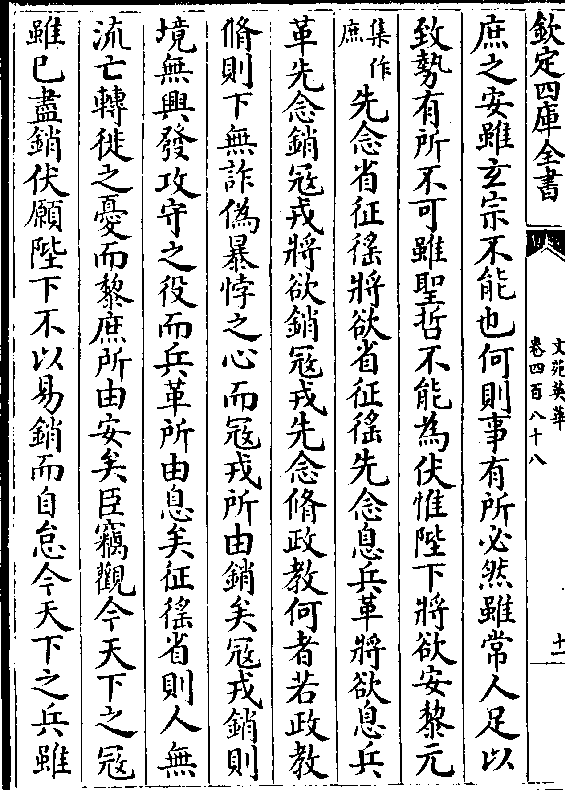 欽定四庫全書
文苑英華
卷四百八十八
十一
庶之安雖玄宗不能也何則事有所必然雖常人足以
致勢有所不可雖聖哲不能為伏惟陛下將欲安黎元
集作
庶
先念省征徭將欲省征徭先念息兵革將欲息兵
革先念銷冦戎將欲銷冦戎先念脩政教何者若政教
脩則下無詐偽暴悖之心而冦戎所由銷矣冦戎銷則
境無興發攻守之役而兵革所由息矣征徭省則人無
流亡轉徙之憂而黎庶所由安矣臣竊觀今天下之冦
雖已盡銷伏願陛下不以易銷而自怠今天下之兵雖